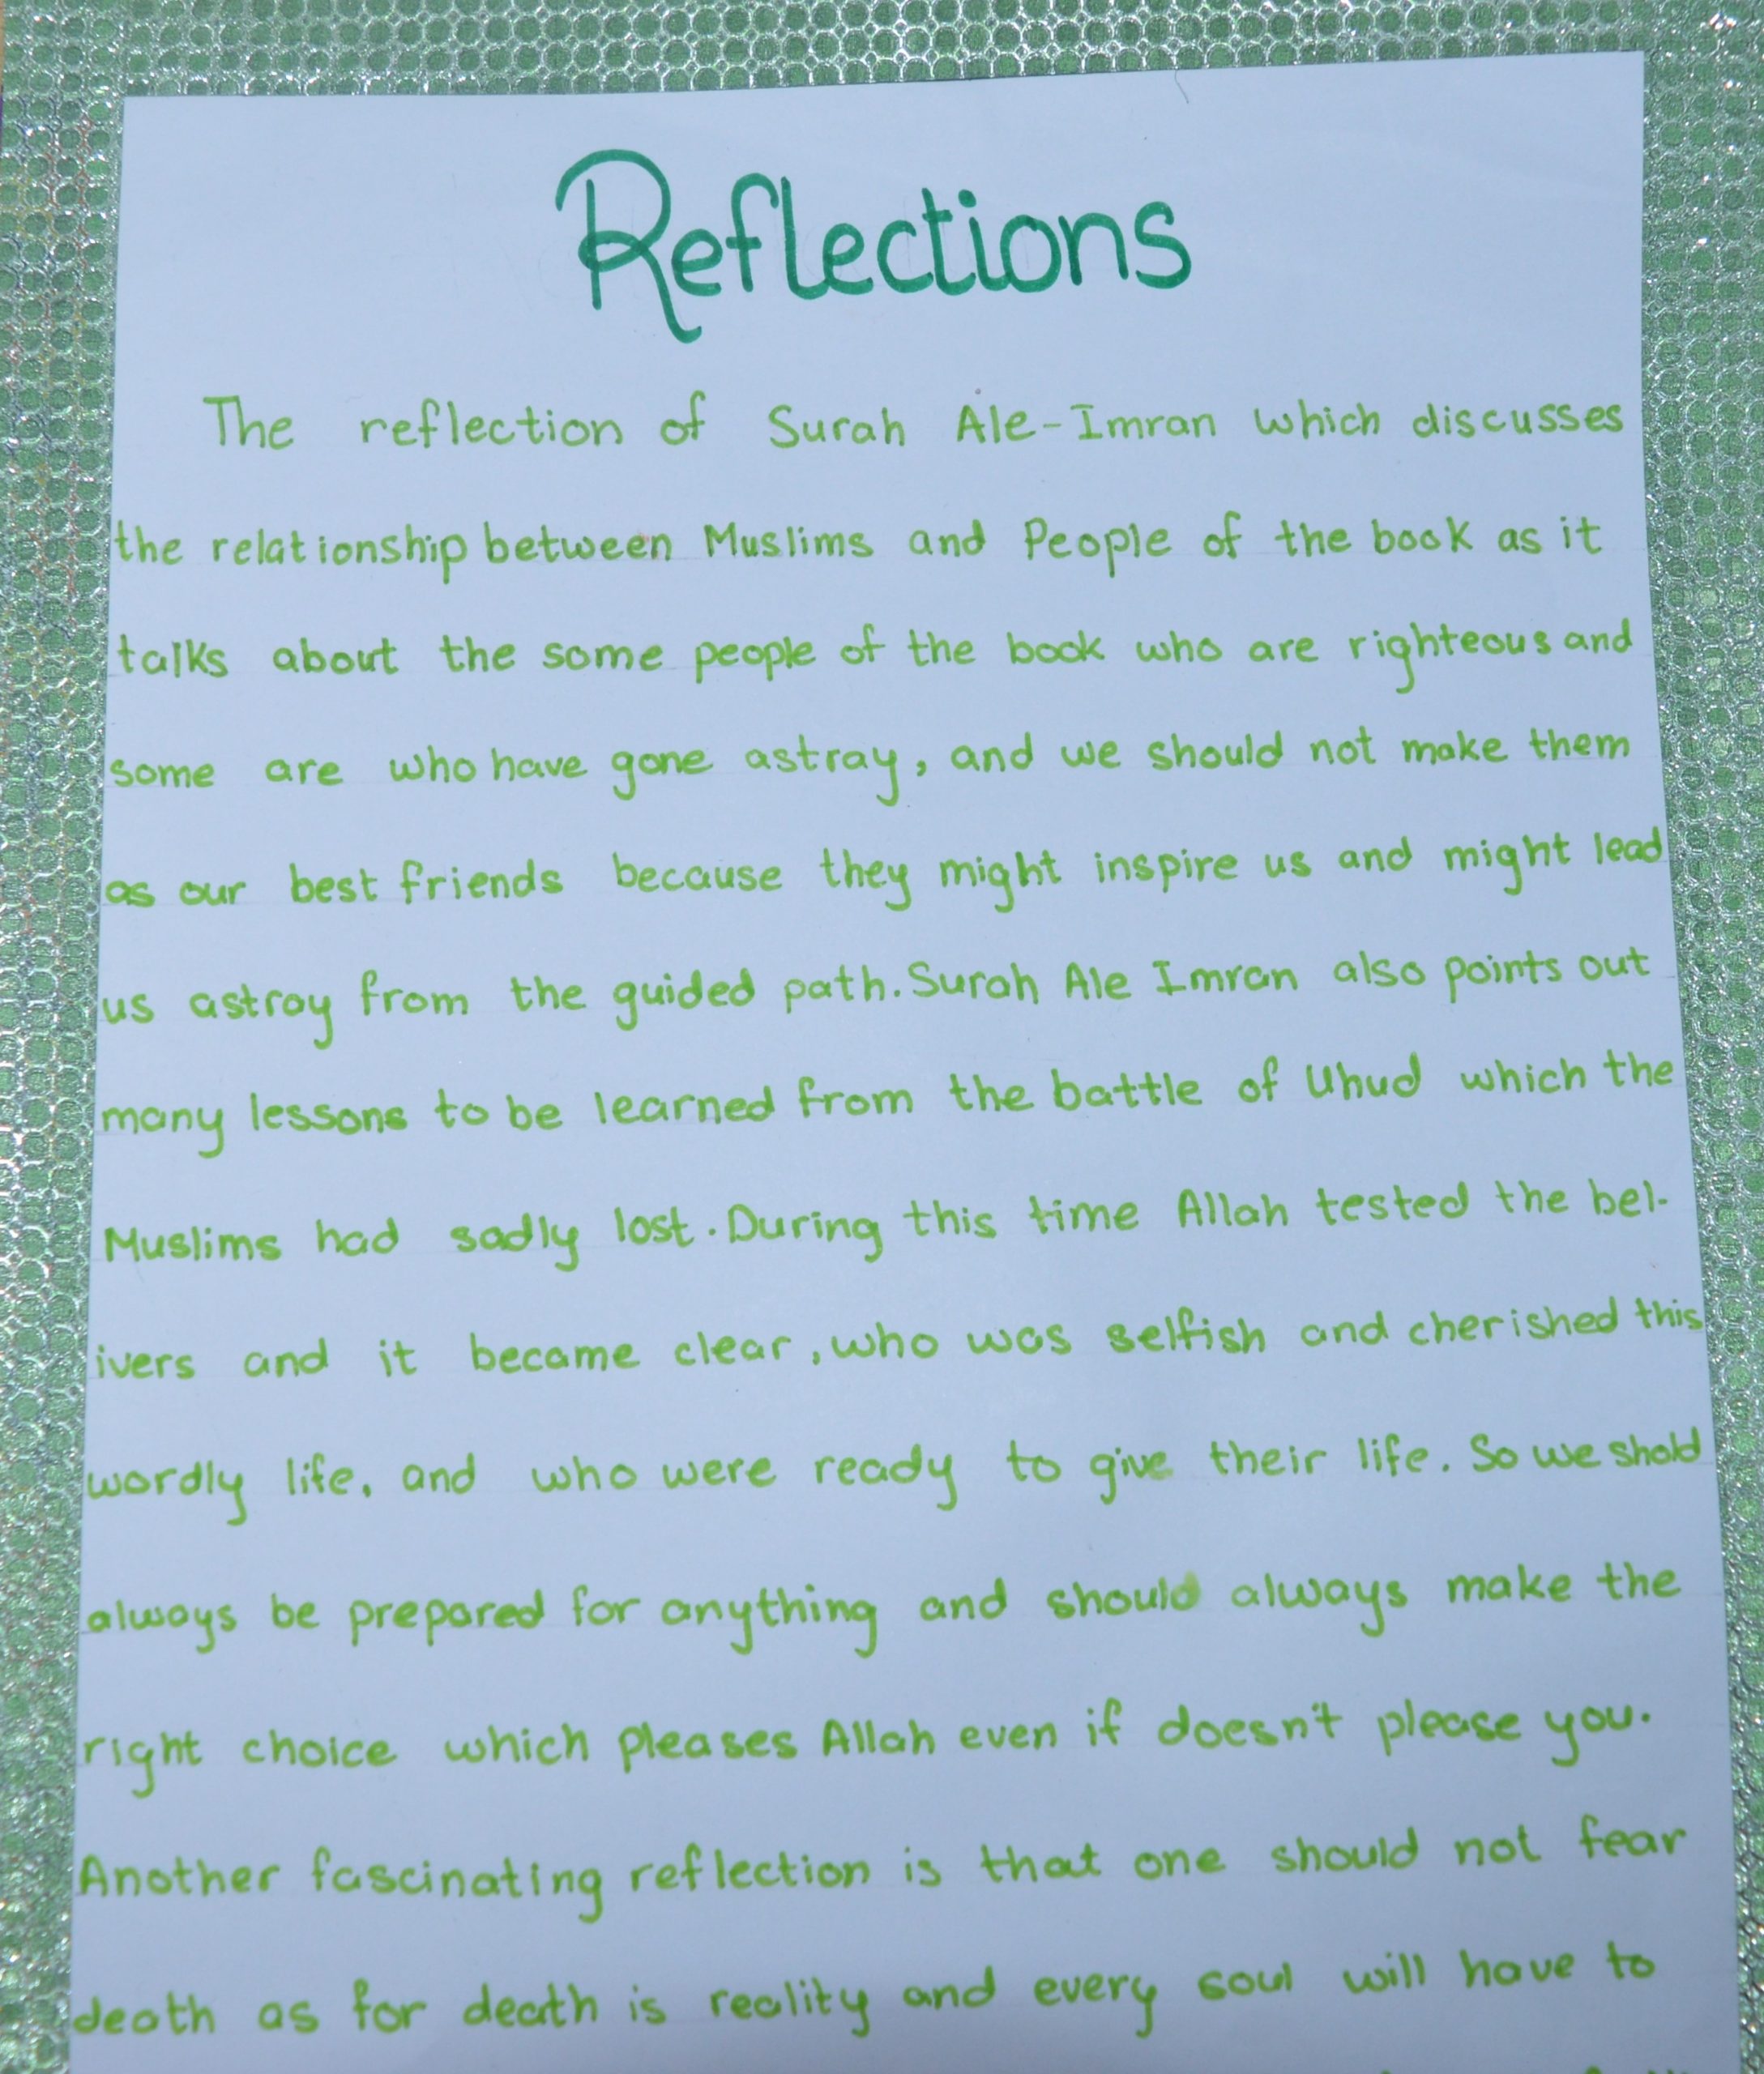 Reflections
The reflection of Surah Ale-Imran which discusses
the relationship between Muslims and People of the book as it
talks about the some people of the book who are righteous and
some are who have gone astray, and we should not make them
as our best friends because they might inspire us and might lead
us astray from the guided path. Surah Ale Imran also points out
many lessons to be learned from the battle of Uhud which the
Muslims had sadly lost. During this time Allah tested the bel-
ivers and it became clear, who was selfish and cherished this
wordly life, and who were ready to give their life. So we shold
always be prepared for anything and should always make the
right choice which pleases Allah even if doesn't please you.
Another fascinating reflection is that one should not fear
death as for death is reality and every soul will have to